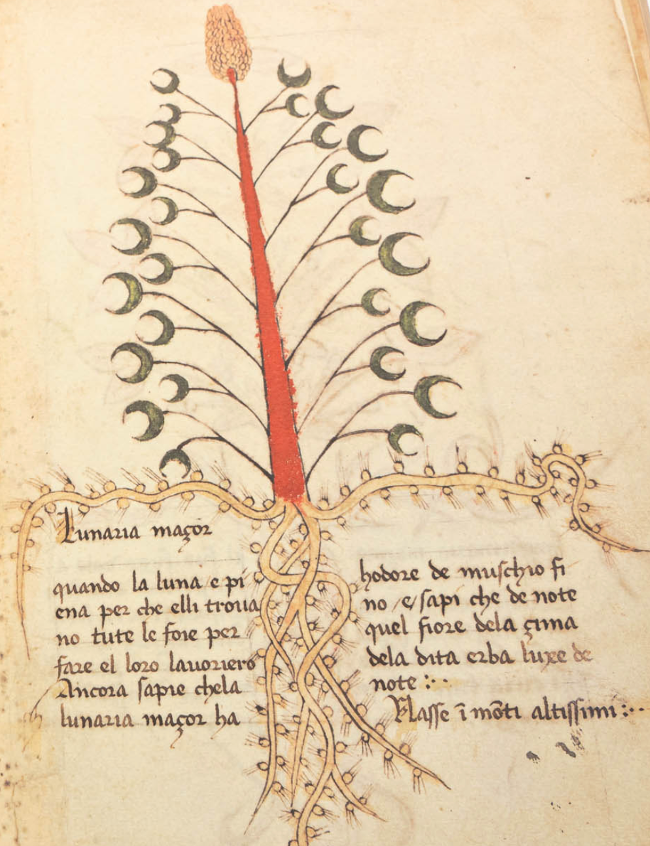 Lunaria maçor
quando la luna e pi
ena per che elli troua
no tute le foie per
fare el loro lauoriero
Ancora sapie chela
lunaria maçor ha
hodore de muschio fi
no /e/ sapi che de note
quel fiore dela çima
dela dita erba luxe de
note :··
Nasse ĩ mõti altissimi :··